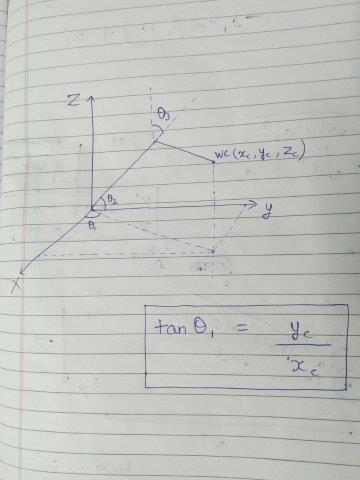 Z
θ3
WC (xc, yc, zc)
θ2
y
θ1
X
tan θ1 = yc / xc